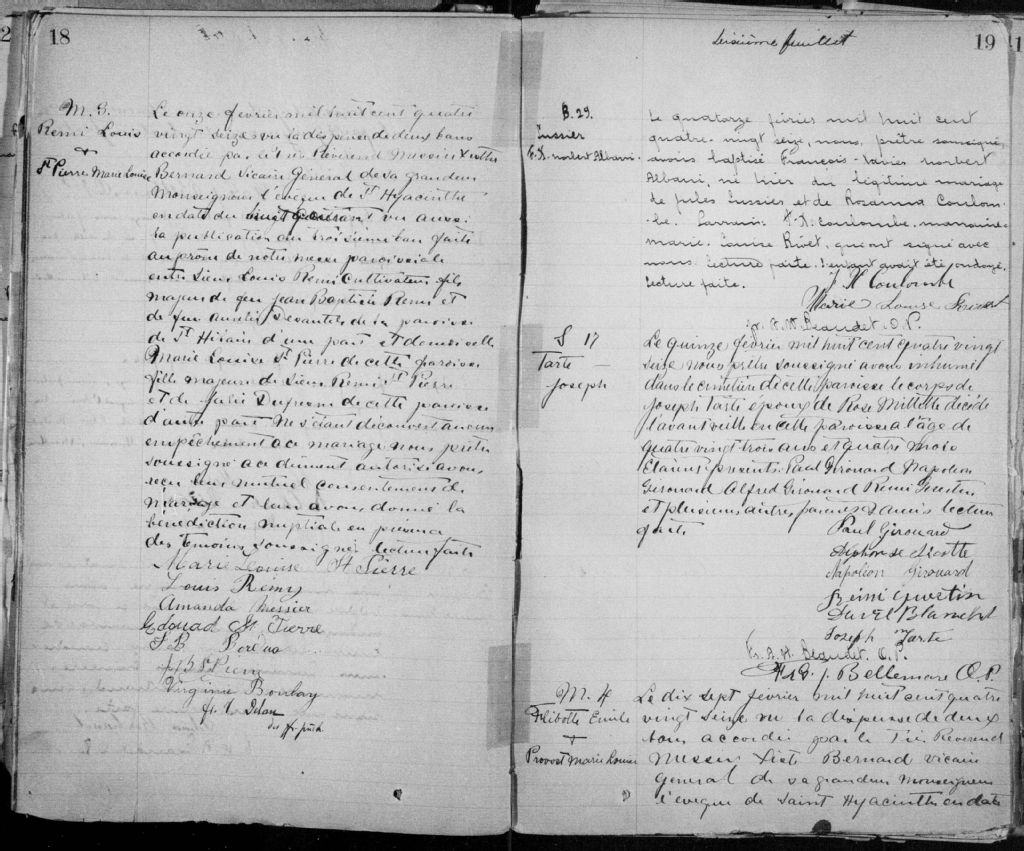 18
M. 3.
Remi Louis
+
St Pierre Marie Louise
Le onze février mil huit cent quatre
vingt seize vu la dispense de deux bans
accordée par le très Révérend Messire
Bernard Vicaire Général de sa grandeur
Monseigneur l'évêque de St Hyacinthe
en date du courant vu aussi
la publication du troisième ban faite
au prône de notre messe paroissiale
entre Sieur Louis Remi Cultivateur fils
majeur de feu Jean Baptiste Remi et
de feu Aurélie Desautels de la paroisse
de St Hilaire d'une part et demoiselle
Marie Louise St Pierre de cette paroisse
fille majeure de Sieur Remi St Pierre
et de Julie Dufresne de cette paroisse
d'autre part Ne s'étant découvert aucun
empêchement à ce mariage nous prêtre
soussigné à ce dûment autorisé avons
reçu leur mutuel consentement de
mariage et leur avons donné la
bénédiction nuptiale en présence
des témoins soussignés lecture faite
Marie Louise St Pierre
Louis Rémy
Amanda Messier
Edouad St Pierre
J. B.
St Pierre
Virginie Boulay
fr.
des ff. prêch.
19
Dixième feuillet
B. 29.
Lussier
F. X. norbert Albani
Le quatorze février mil huit cent
quatre-vingt seize, nous, prêtre soussigné,
avons baptisé François-Xavier norbert
Albani, né hier du légitime mariage
de Lussier et de Rosanna Coulom-
be. Parrain: F. X. Coulombe, marraine:
marie-Louise Rivet, qui ont signé avec
nous. lecture faite. l'enfant avait été ondoyé,
lecture faite.
F X Coulombe
Marie Louise Rivet
fr. A. M. Beaudet. O. P.
S 17
Tarte
Joseph
Le quinze février mil huit cent quatre vingt
seize nous prêtre soussigné avons inhumé
dans le cimetière de cette paroisse le corps de
Joseph Tarte époux de Rose Millette décédé
l'avant veille en cette paroisse à l'âge de
quatre vingt trois ans et quatre mois
Etaient présents Paul Girouard Napoléon
Girouard Alfred Girouard Remi Guertin
et plusieurs autres parents & amis lecture
faite
Paul Girouard
Alphonse
Napoléon Girouard
Rémi Guertin
Blanchet
Joseph Tarte
fr. A. M. Beaudet. O. P.
fr J. Bellemare O. P.
M. 4
Phlibotte Emile
+
Provost Marie Louise
Le dix sept février mil huit cent quatre
vingt seize vu la dispense de deux
bans accordée par le Très Révérend
Messire Bernard vicaire
général de sa grandeur Monseigneur
l'évêque de Saint Hyacinthe en date